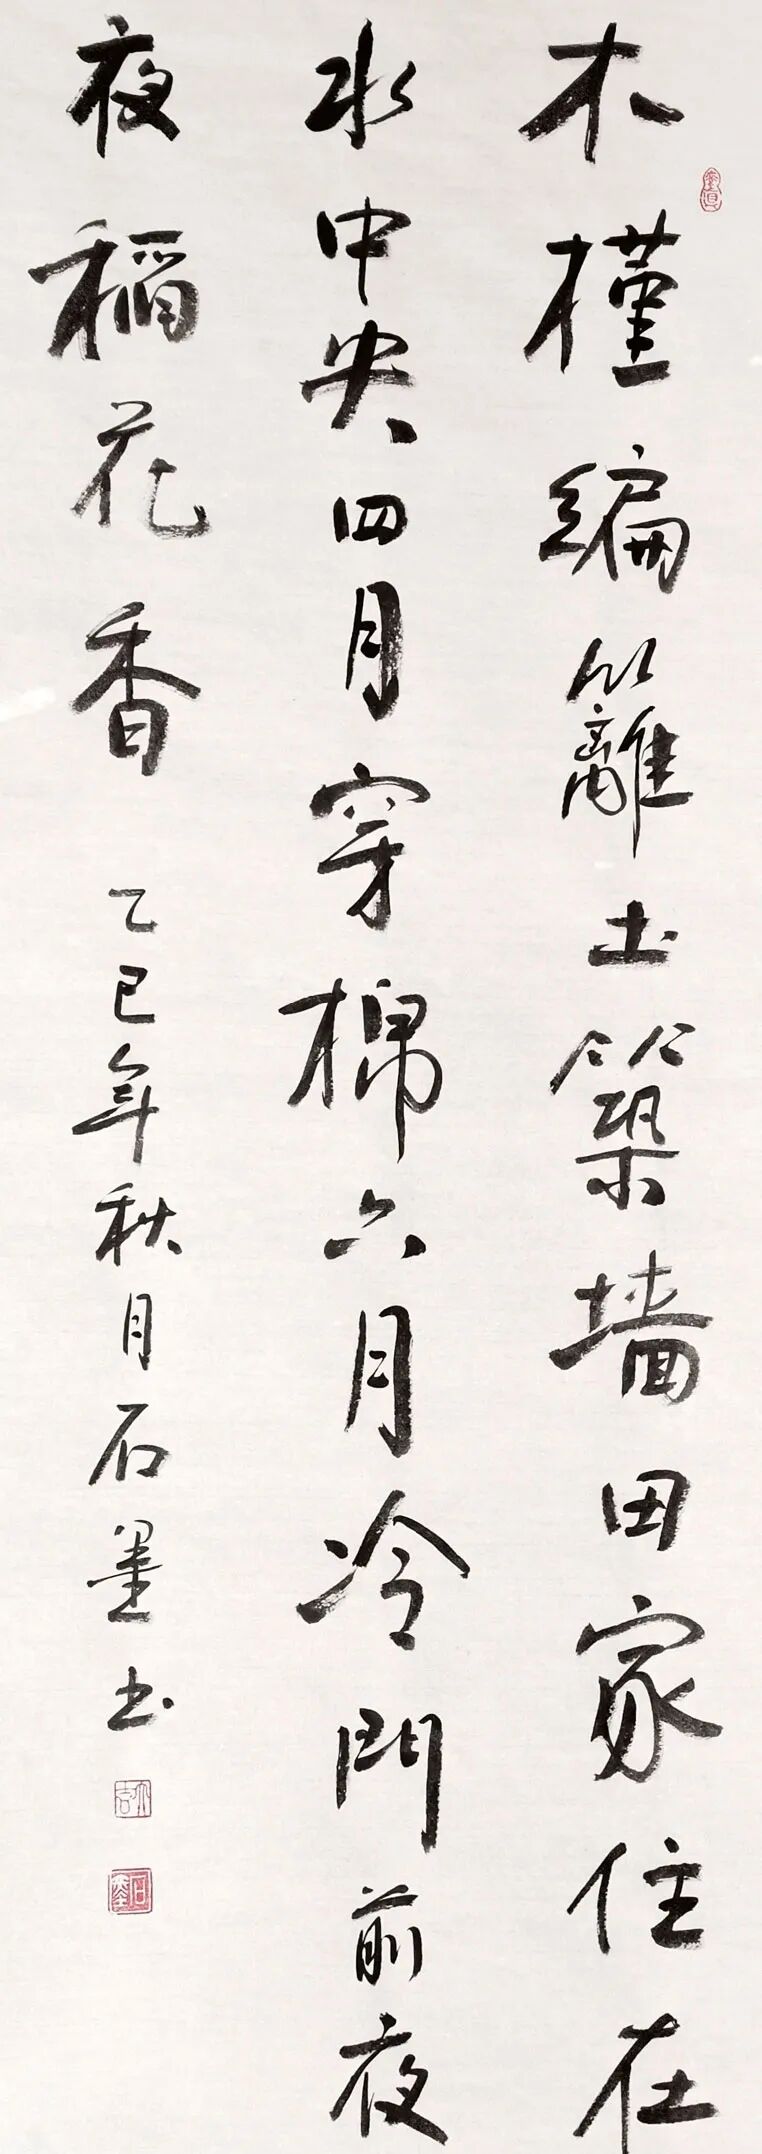 木槿編籬土築墙田家住在
水中央四月穿棉六月冷門前夜
夜稻花香
乙巳年秋月石墨书